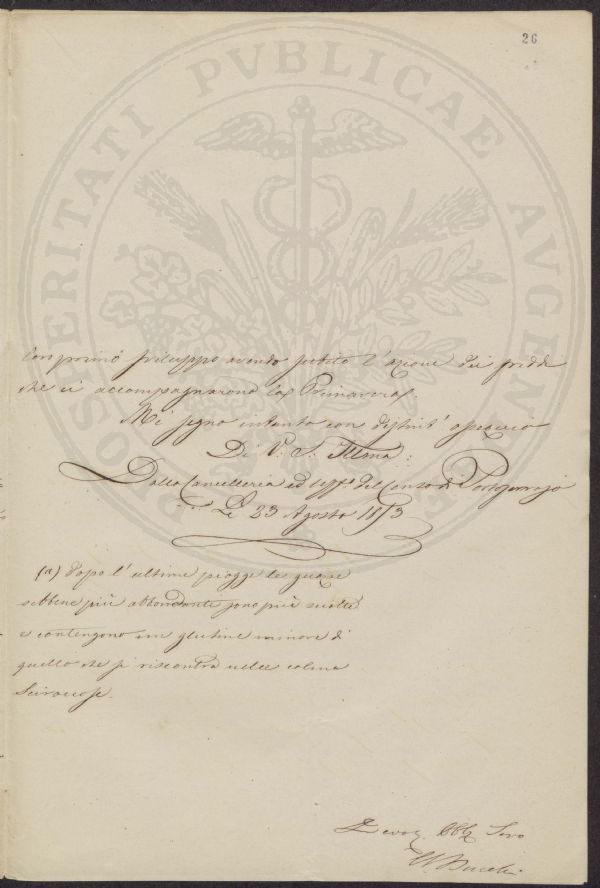 26
PROSPERITATI PVBLICAE AVGENDAE
loro primo sviluppo avendo subito l'azione dei freddi
che ci accompagnarono la Primavera.
Mi segno intanto con distint' ossequio
Di V. S. Illma
Dalla Cancelleria ed Uff.o del Censo di
Li 23 Agosto
(a) Dopo l'ultime piogge le
sebbene più abbondanti sono più sciolte
e contengono un glutine minore di
quello che si riscontra nelle
Sciroccose.
Devoz. Obb Servo